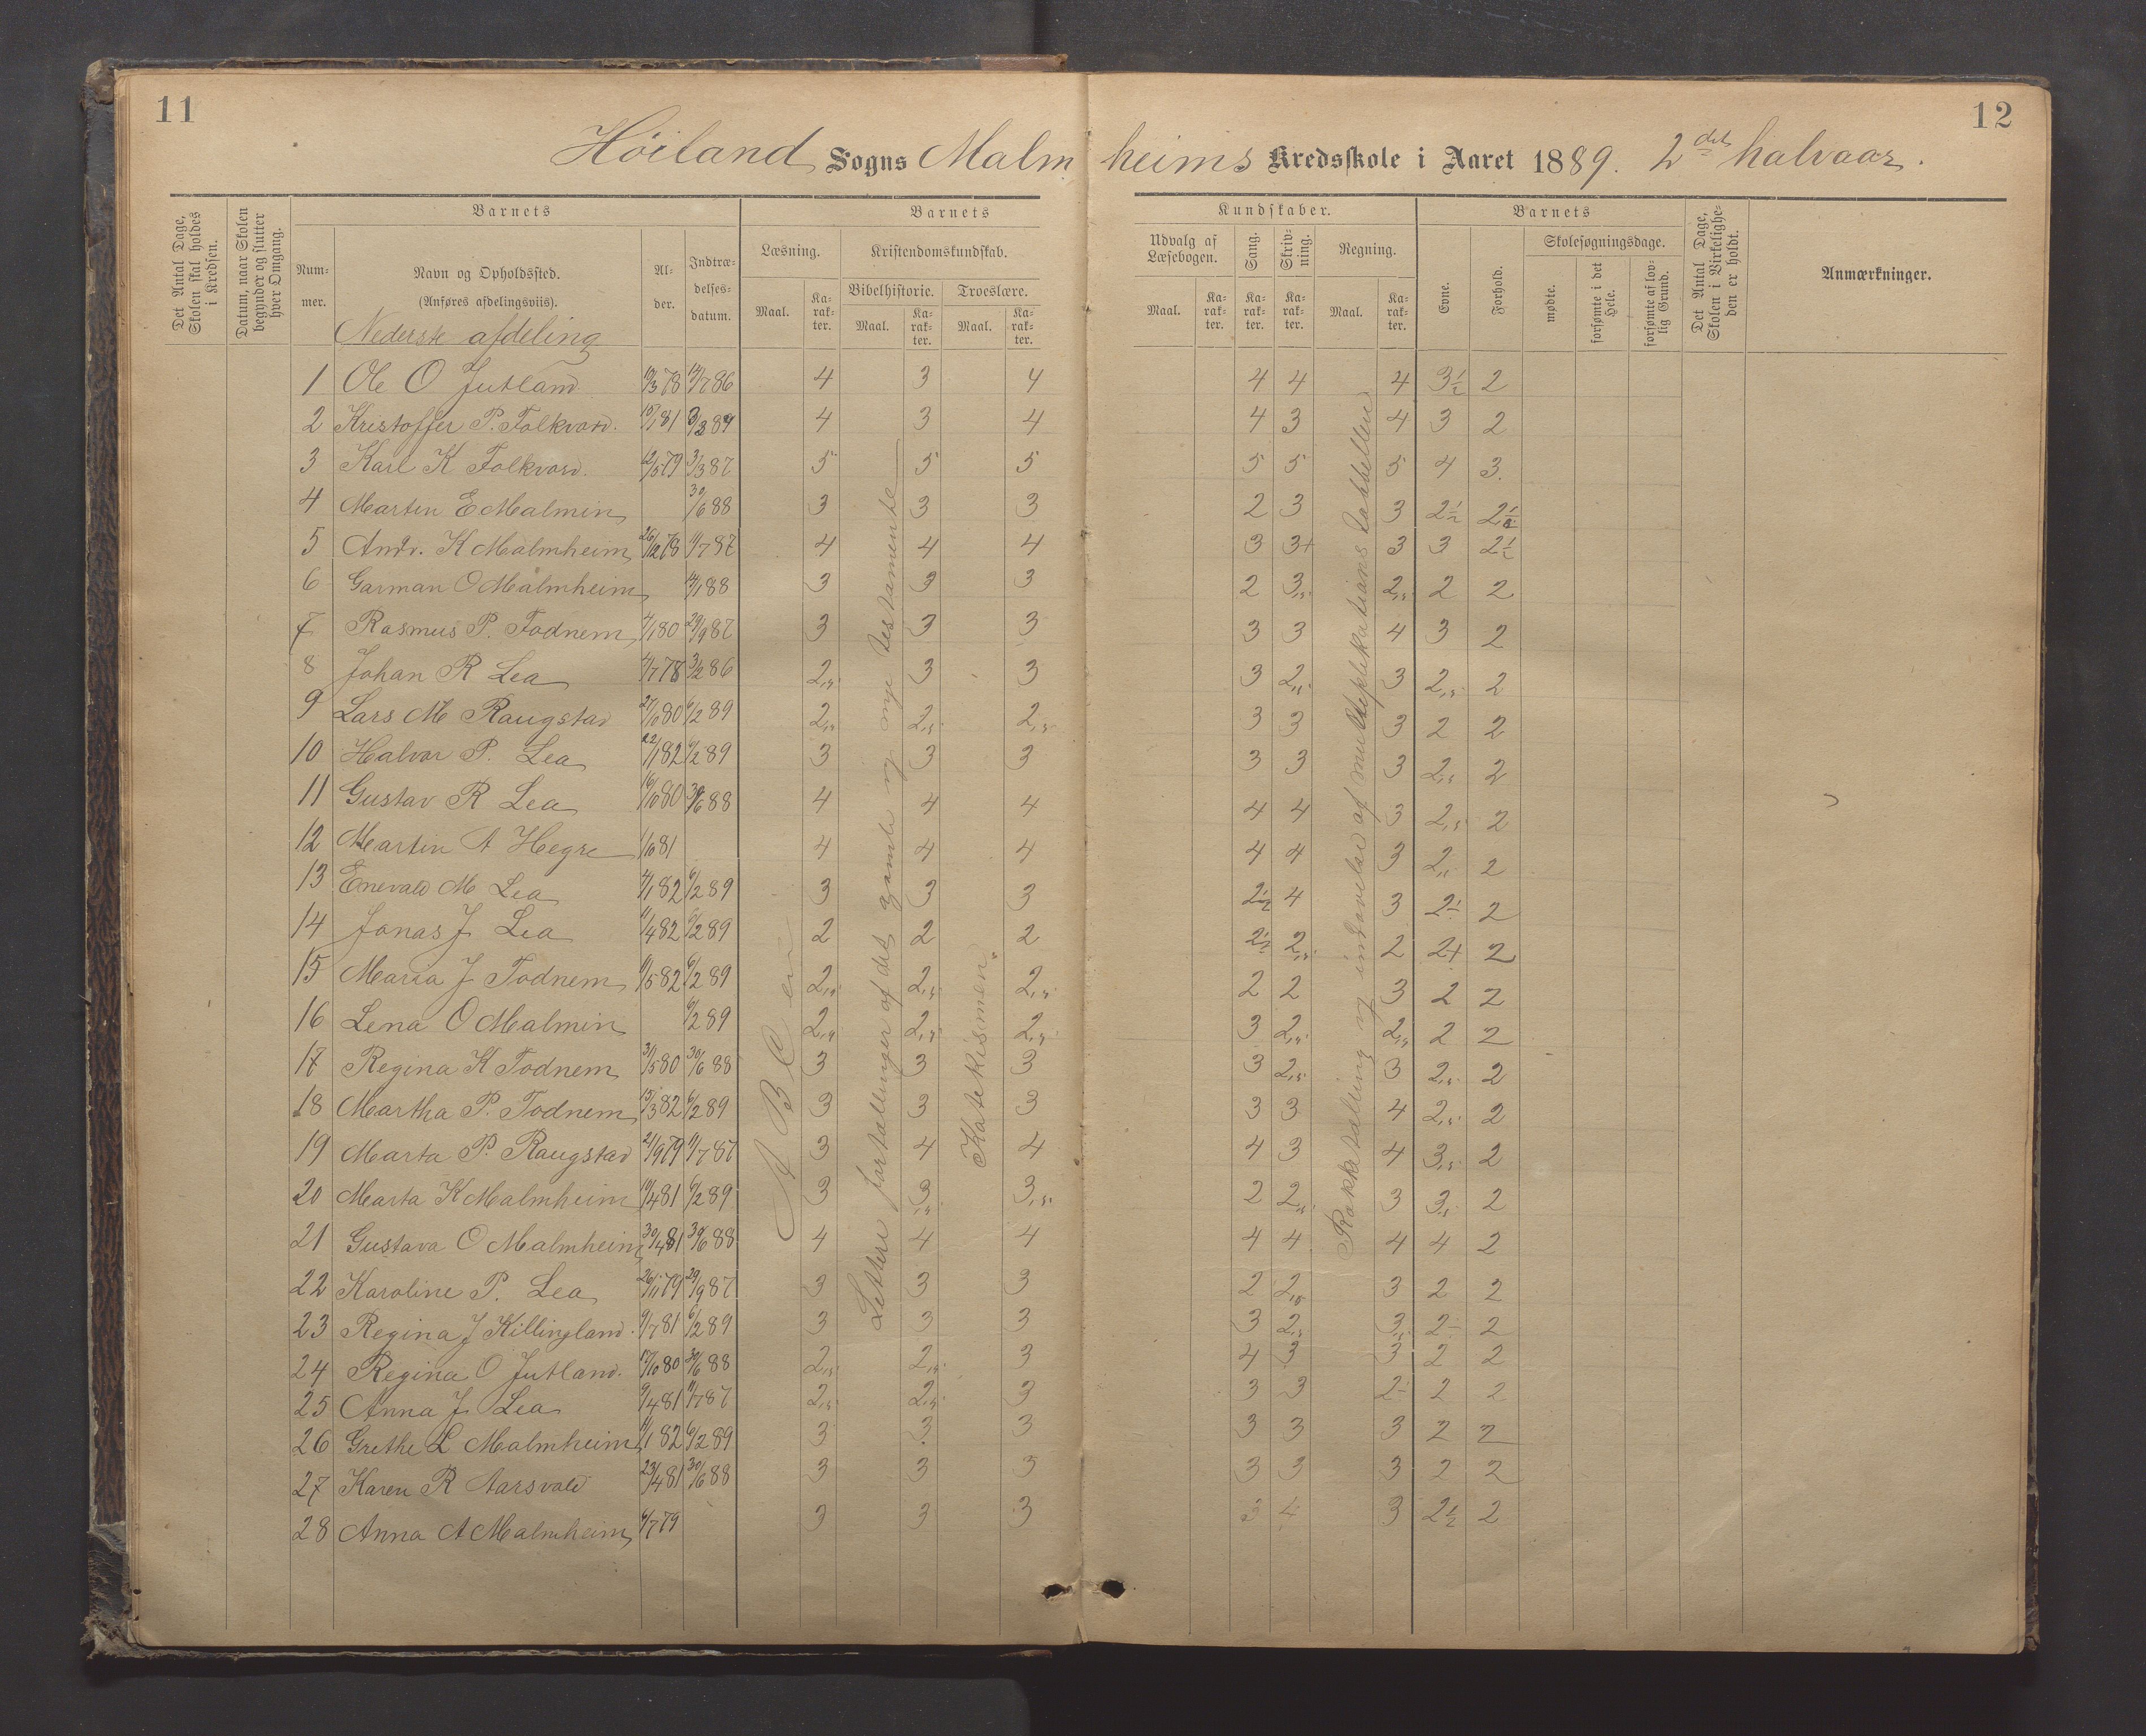 11
12
Höiland Sogns Malmheims Kredsskole i Aaret 1889. 2det halvaar.
Det Antal Dage, Skolen skal holdes i Kredsen.
Datum, naar Skolen begynder og slutter hver Omgang.
Barnets
Nummer.
Navn og Opholdssted.
(Anføres afdelingsviis).
Alder.
Indtrædelsesdatum.
Barnets
Læsning.
Maal.
Karakter.
Kristendomskundskab.
Bibelhistorie.
Maal.
Karakter.
Troeslære.
Maal.
Karakter.
Kundskaber.
Udvalg af Læsebogen.
Maal.
Karakter.
Sang.
Karakter.
Skrivning.
Karakter.
Regning.
Maal.
Karakter.
Barnets
Evne.
Forhold.
Skolesøgningsdage.
mødte.
forsømte i det Hele.
forsømte af lovlig Grund.
Det Antal Dage, Skolen i Virkeligheden er holdt.
Anmærkninger.
Nederste afdeling
1 Ole O Jutland 19/3 78 14/7 86 4 3 4 4 4 4 3½ 2
2 Kristoffer P. Folkvord. 15/1 81 4 3 4 4 3 4 3 2
3 Karl K Folkvord. 12/5 79 3/3 87 5 5 5 5 5 5 4 3.
4 Martin E Malmin 30/6 88 3 3 3 2 3 3 2½ 2½
5 Andr. K Malmheim 26/12 78 11/7 87 4 4 4 3 3+ 3 3 2½
6 Garman O Malmheim 14/1 88 3 3 3 2 3,5 2,5 2 2
7 Rasmus P. Todnem 4/1 80 29/9 87 3 3 3 3 3 4 3 2
8 Johan R Lea 4/7 78 3/2 86 2,5 3 3 3 2,5 3 2,5 2
9 Lars M Raugstad 27/10 80 6/2 89 2,5 2,5 2,5 3 3 3 2 2
10 Halvor P. Lea 22/1 82 6/2 89 3 3 3 3 3 3 2,5 2
11 Gustav R Lea 16/10 80 30/6 88 4 4 4 4 4 3 2,5 2
12 Martin A Hegre 1/10 81 4 4 4 4 4 3 2,5 2
13 Enevald M Lea 4/1 82 6/2 89 3 3 3 2½ 4 3 2½ 2
14 Jonas J Lea 11/4 82 6/2 89 2 2 2 2½ 2,5 2 2+ 2
15 Maria J Todnem 11/5 82 6/2 89 2,5 2,5 2,5 2 2 3 2 2
16 Lena O Malmin 6/2 89 2,5 2,5 2,5 3 2,5 2,5 2 2
17 Regina K Todnem 31/5 80 30/6 88 3 3 3 3 2,5 3 2,5 2
18 Martha P. Todnem 15/3 82 6/2 89 3 3 3 3 3 4 2,5 2
19 Marta P. Raugstad 21/9 79 11/7 87 3 4 4 4 3 4 3,5 2
20 Marta K Malmheim 19/4 81 6/2 89 3 3,5 3,5 2 2,5 3 3,5 2
21 Gustava O Malmheim 30/4 81 30/6 88 4 4 4 4 4 4 4 2
22 Karoline P. Lea 26/11 79 29/9 87 3 3 3 2 2,5 3 2 2
23 Regina J Killingland. 9/7 81 6/2 89 3 3 3 3 2,5 3,5 2- 2
24 Regina O Jutland. 17/10 80 30/6 88 2,5 2,5 3 4 3 3 2 2
25 Anna J Lea 9/4 81 11/7 87 2,5 2,5 3 3 3 2- 2 2
26 Grethe L Malmheim 11/1 82 6/2 89 3 3 3 3 3 3 2 2
27 Karen R Aarsvold 23/4 81 30/6 88 3 3 3 3 3 3 2 2
28 Anna A Malmheim 6/7 79 3 3 3 3 4 3 2½ 2
A B C en
Lettere fortællinger af det gamle og nye testamente
Katekismen.
Rækketælling og indøvelse af multiplikations tabellen